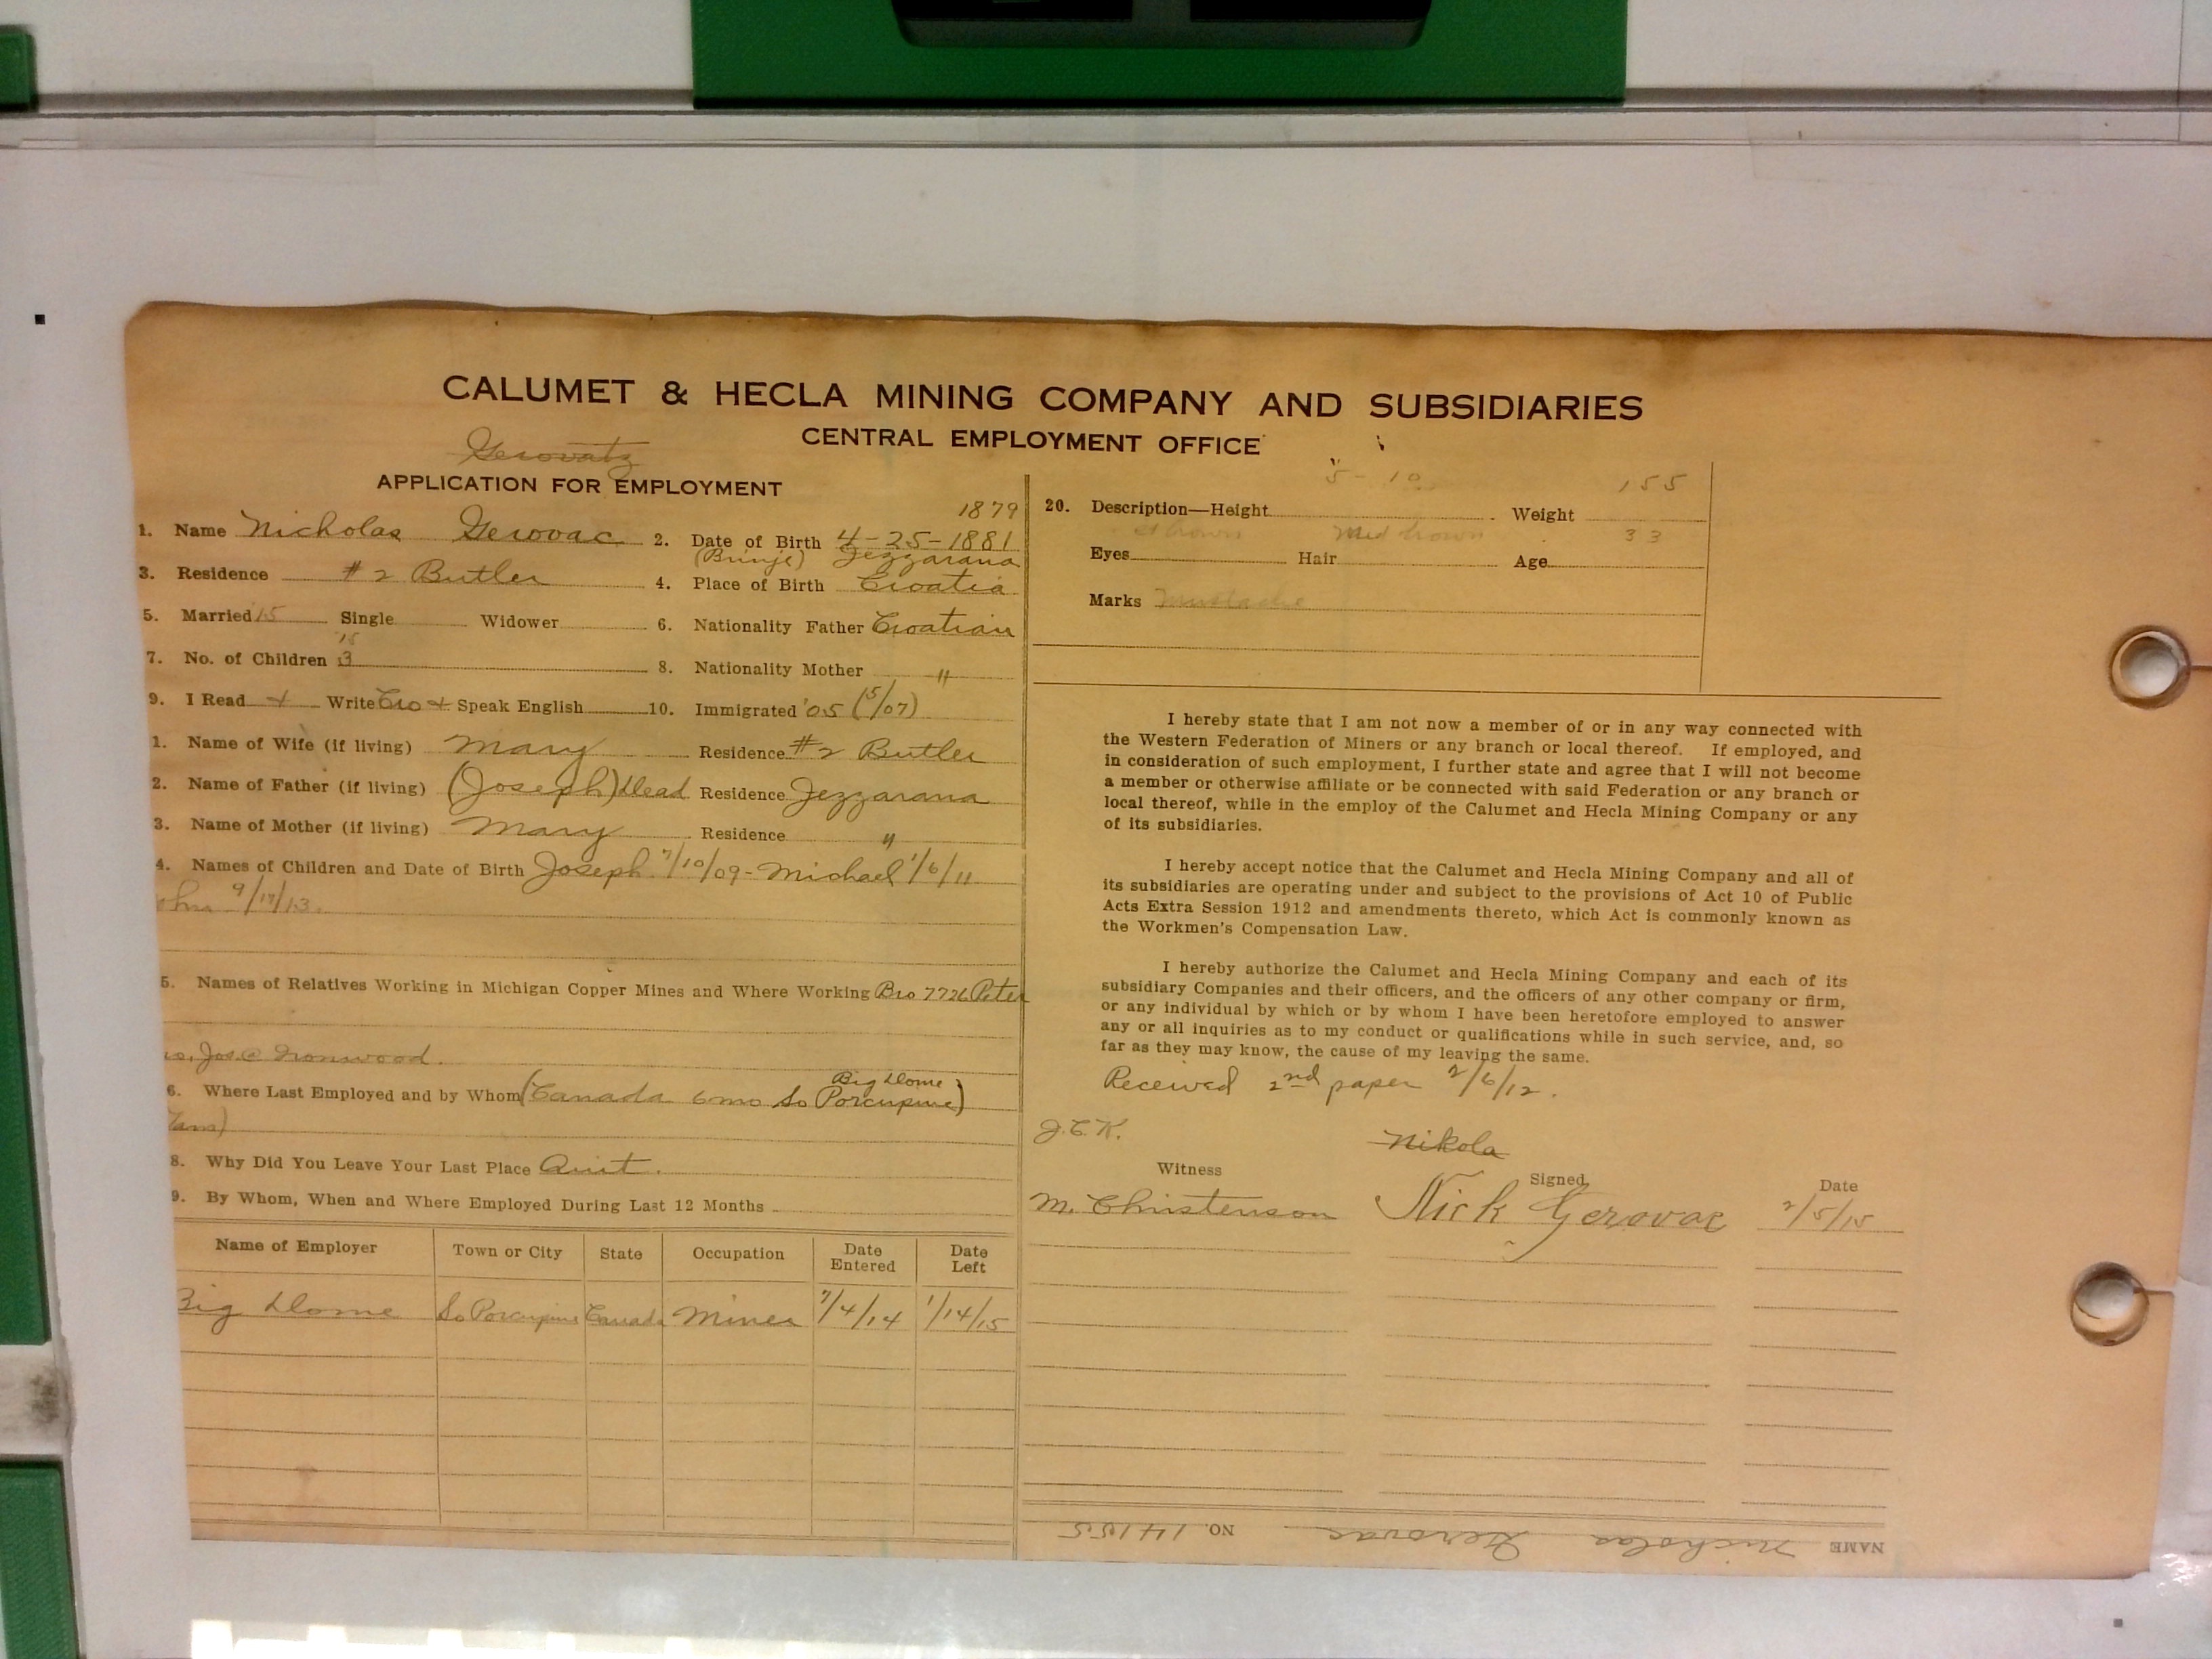 CALUMET & HECLA MINING COMPANY AND SUBSIDIARIES
CENTRAL EMPLOYMENT OFFICE
Gerovatz
APPLICATION FOR EMPLOYMENT
1879
1. Name Nicholas Gerovac 2. Date of Birth 4-25-1881
(Brinje) Jezzarana
3. Residence #2 Butler 4. Place of Birth Croatia
5. Married '15 Single Widower 6. Nationality Father Croatian
'15
7. No. of Children 3 8. Nationality Mother "
9. I Read + Write Cro + Speak English 10. Immigrated '05 (5/07)
1. Name of Wife (if living) Mary Residence #2 Butler
2. Name of Father (if living) (Joseph) Dead Residence Jezzarana
3. Name of Mother (if living) Mary Residence "
4. Names of Children and Date of Birth Joseph 7/10/09 - Michael 1/6/11
ohn 9/17/13.
5. Names of Relatives Working in Michigan Copper Mines and Where Working Bro 7726 Peter
o. Jos. @ Ironwood.
Big Dome
6. Where Last Employed and by Whom (Canada 6mo So Porcupine)
8. Why Did You Leave Your Last Place Quit.
9. By Whom, When and Where Employed During Last 12 Months
Name of Employer Town or City State Occupation Date Entered Date Left
Big Dome So Porcupine Canada Miner 7/4/14 1/14/15
5-10 155
20. Description—Height Weight
Brown Med brown 33
Eyes Hair Age
Marks Mustache
I hereby state that I am not now a member of or in any way connected with
the Western Federation of Miners or any branch or local thereof. If employed, and
in consideration of such employment, I further state and agree that I will not become
a member or otherwise affiliate or be connected with said Federation or any branch or
local thereof, while in the employ of the Calumet and Hecla Mining Company or any
of its subsidiaries.
I hereby accept notice that the Calumet and Hecla Mining Company and all of
its subsidiaries are operating under and subject to the provisions of Act 10 of Public
Acts Extra Session 1912 and amendments thereto, which Act is commonly known as
the Workmen's Compensation Law.
I hereby authorize the Calumet and Hecla Mining Company and each of its
subsidiary Companies and their officers, and the officers of any other company or firm,
or any individual by which or by whom I have been heretofore employed to answer
any or all inquiries as to my conduct or qualifications while in such service, and, so
far as they may know, the cause of my leaving the same.
Received 2nd paper 2/6/12.
J.C.K. Nikola
Witness Signed Date
M. Christenson Nick Gerovac 2/5/15
NAME Nicholas Gerovac NO. 14155